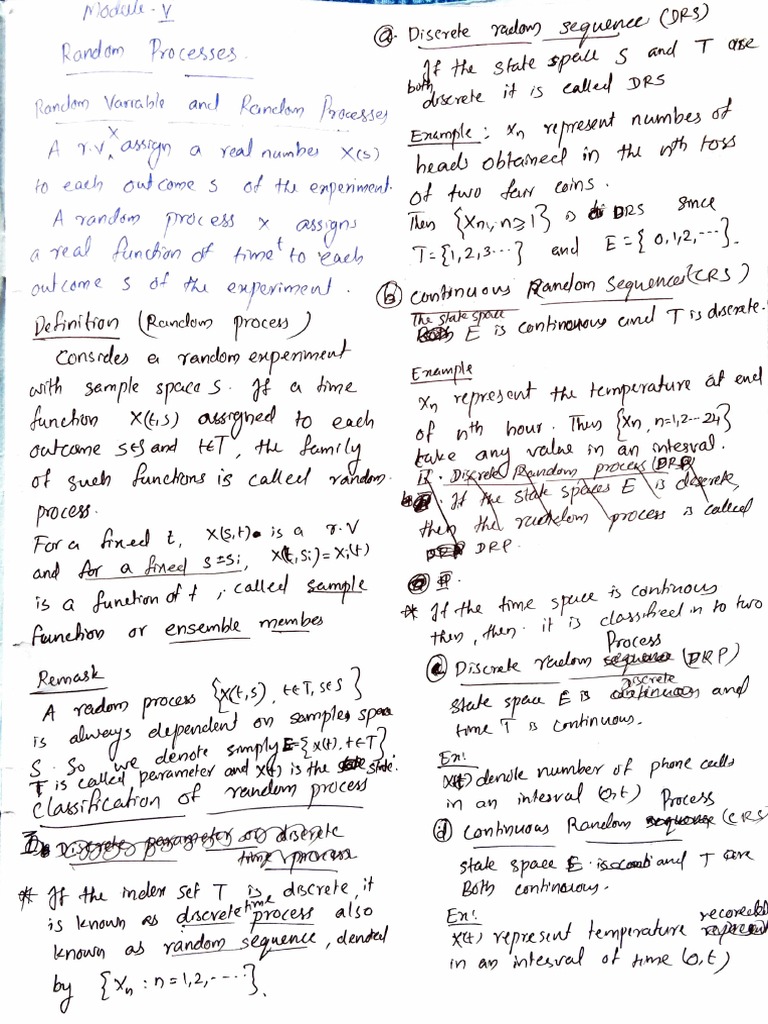 Module-V
Random Processes.
Random Variable and Random Processes
A r.v X assign a real number X(s)
to each outcome s of the experiment.
A random process x assigns
a real function of time t to each
outcome s of the experiment.
Definition (Random process)
Consider a random experiment
with sample space S. If a time
function X(t,s) assigned to each
outcome s∈S and t∈T, the family
of such functions is called random
process.
For a fixed t, X(s,t) is a r.v
and for a fixed s=si, X(t,si)=Xi(t)
is a function of t, called sample
function or ensemble member
Remark
A radom process {X(t,s), t∈T, s∈S}
is always dependent on samples space
S. So we denote simply E={X(t), t∈T}
T is called parameter and X(t) is the state.
Classification of random process
Discrete parameter or discrete
time process
* If the index set T is discrete, it
is known as discrete time process also
known as random sequence, denoted
by {Xn : n=1,2,-----}.
(a). Discrete radom sequence (DRS)
If the state space S and T are
both discrete it is called DRS
Example: Xn represent numbers of
heads obtained in the nth toss
of two fair coins.
Then {Xn, n≥1} is DRS since
T={1,2,3---} and E={0,1,2,---}.
(b) Continuous Random Sequences (CRS)
The state space
E is continuous and T is discrete.
Example
Xn represent the temperature at end
of nth hour. Then {Xn, n=1,2--24}
take any value in an interval.
II. Discrete Random process (DRP)
If the state spaces E is discrete,
then the random process is called
DRP.
II.
* If the time space is continous
then, then it is classified in to two
Process
(c) Discrete radom sequence (DRP)
discrete
state space E is continuous and
time T is continuous.
Ex:
X(t) denote number of phone calls
in an interval (0,t)
Process
(d) Continuous Random sequence (CRS)
state space E and T are
Both continuous.
Ex:
X(t) represent temperature recorded
in an interval of time (0,t)